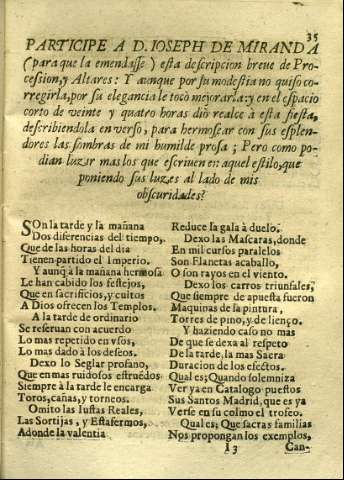 35
PARTICIPE A D. IOSEPH DE MIRANDA
(para que la emendasse) esta descripcion breve de Pro-
cession, y Altares: Y aunque por su modestia no quiso co-
rregirla, por su elegancia le tocò mejorarla: y en el espacio
corto de veinte y quatro horas diò realce à esta fiesta,
describiendola en verso, para hermosear con sus esplen-
dores las sombras de mi humilde prosa; Pero como po-
dian luzir mas los que escriuen en aquel estilo, que
poniendo sus luzes al lado de mis
obscuridades?
SOn la tarde y la mañana
Dos diferencias del tiempo,
Que de las horas del dia
Tienen partido el Imperio.
Y aunq̃ à la mañana hermosa
Le han cabido los festejos,
Que en sacrificios, y cultos
A Dios ofrecen los Templos.
A la tarde de ordinario
Se reseruan con acuerdo
Lo mas repetido en vsos,
Lo mas dado à los deseos.
Dexo lo Seglar profano,
Que en mas ruidosos estruẽdos
Siempre à la tarde le encarga
Toros, cañas, y torneos.
Omito las Iustas Reales,
Las Sortijas, y Estafermos,
Adonde la valentia
Reduce la gala à duelo.
Dexo las Mascaras, donde
En mil cursos paralelos
Son Planetas acaballo,
O son rayos en el viento.
Dexo los carros triunfales,
Que siempre de apuesta fueron
Maquinas de la pintura,
Torres de pino, y de lienço.
Y haziendo caso no mas
De que se dexa al respeto
De la tarde, la mas Sacra
Duracion de los efectos.
Qual es; Quando solemniza
Ver ya en Catalogo puestos
Sus Santos Madrid, que es ya
Verse en su colmo el trofeo.
Qual es; Que sacras familias
Nos propongan los exemplos,
I 3 Can-